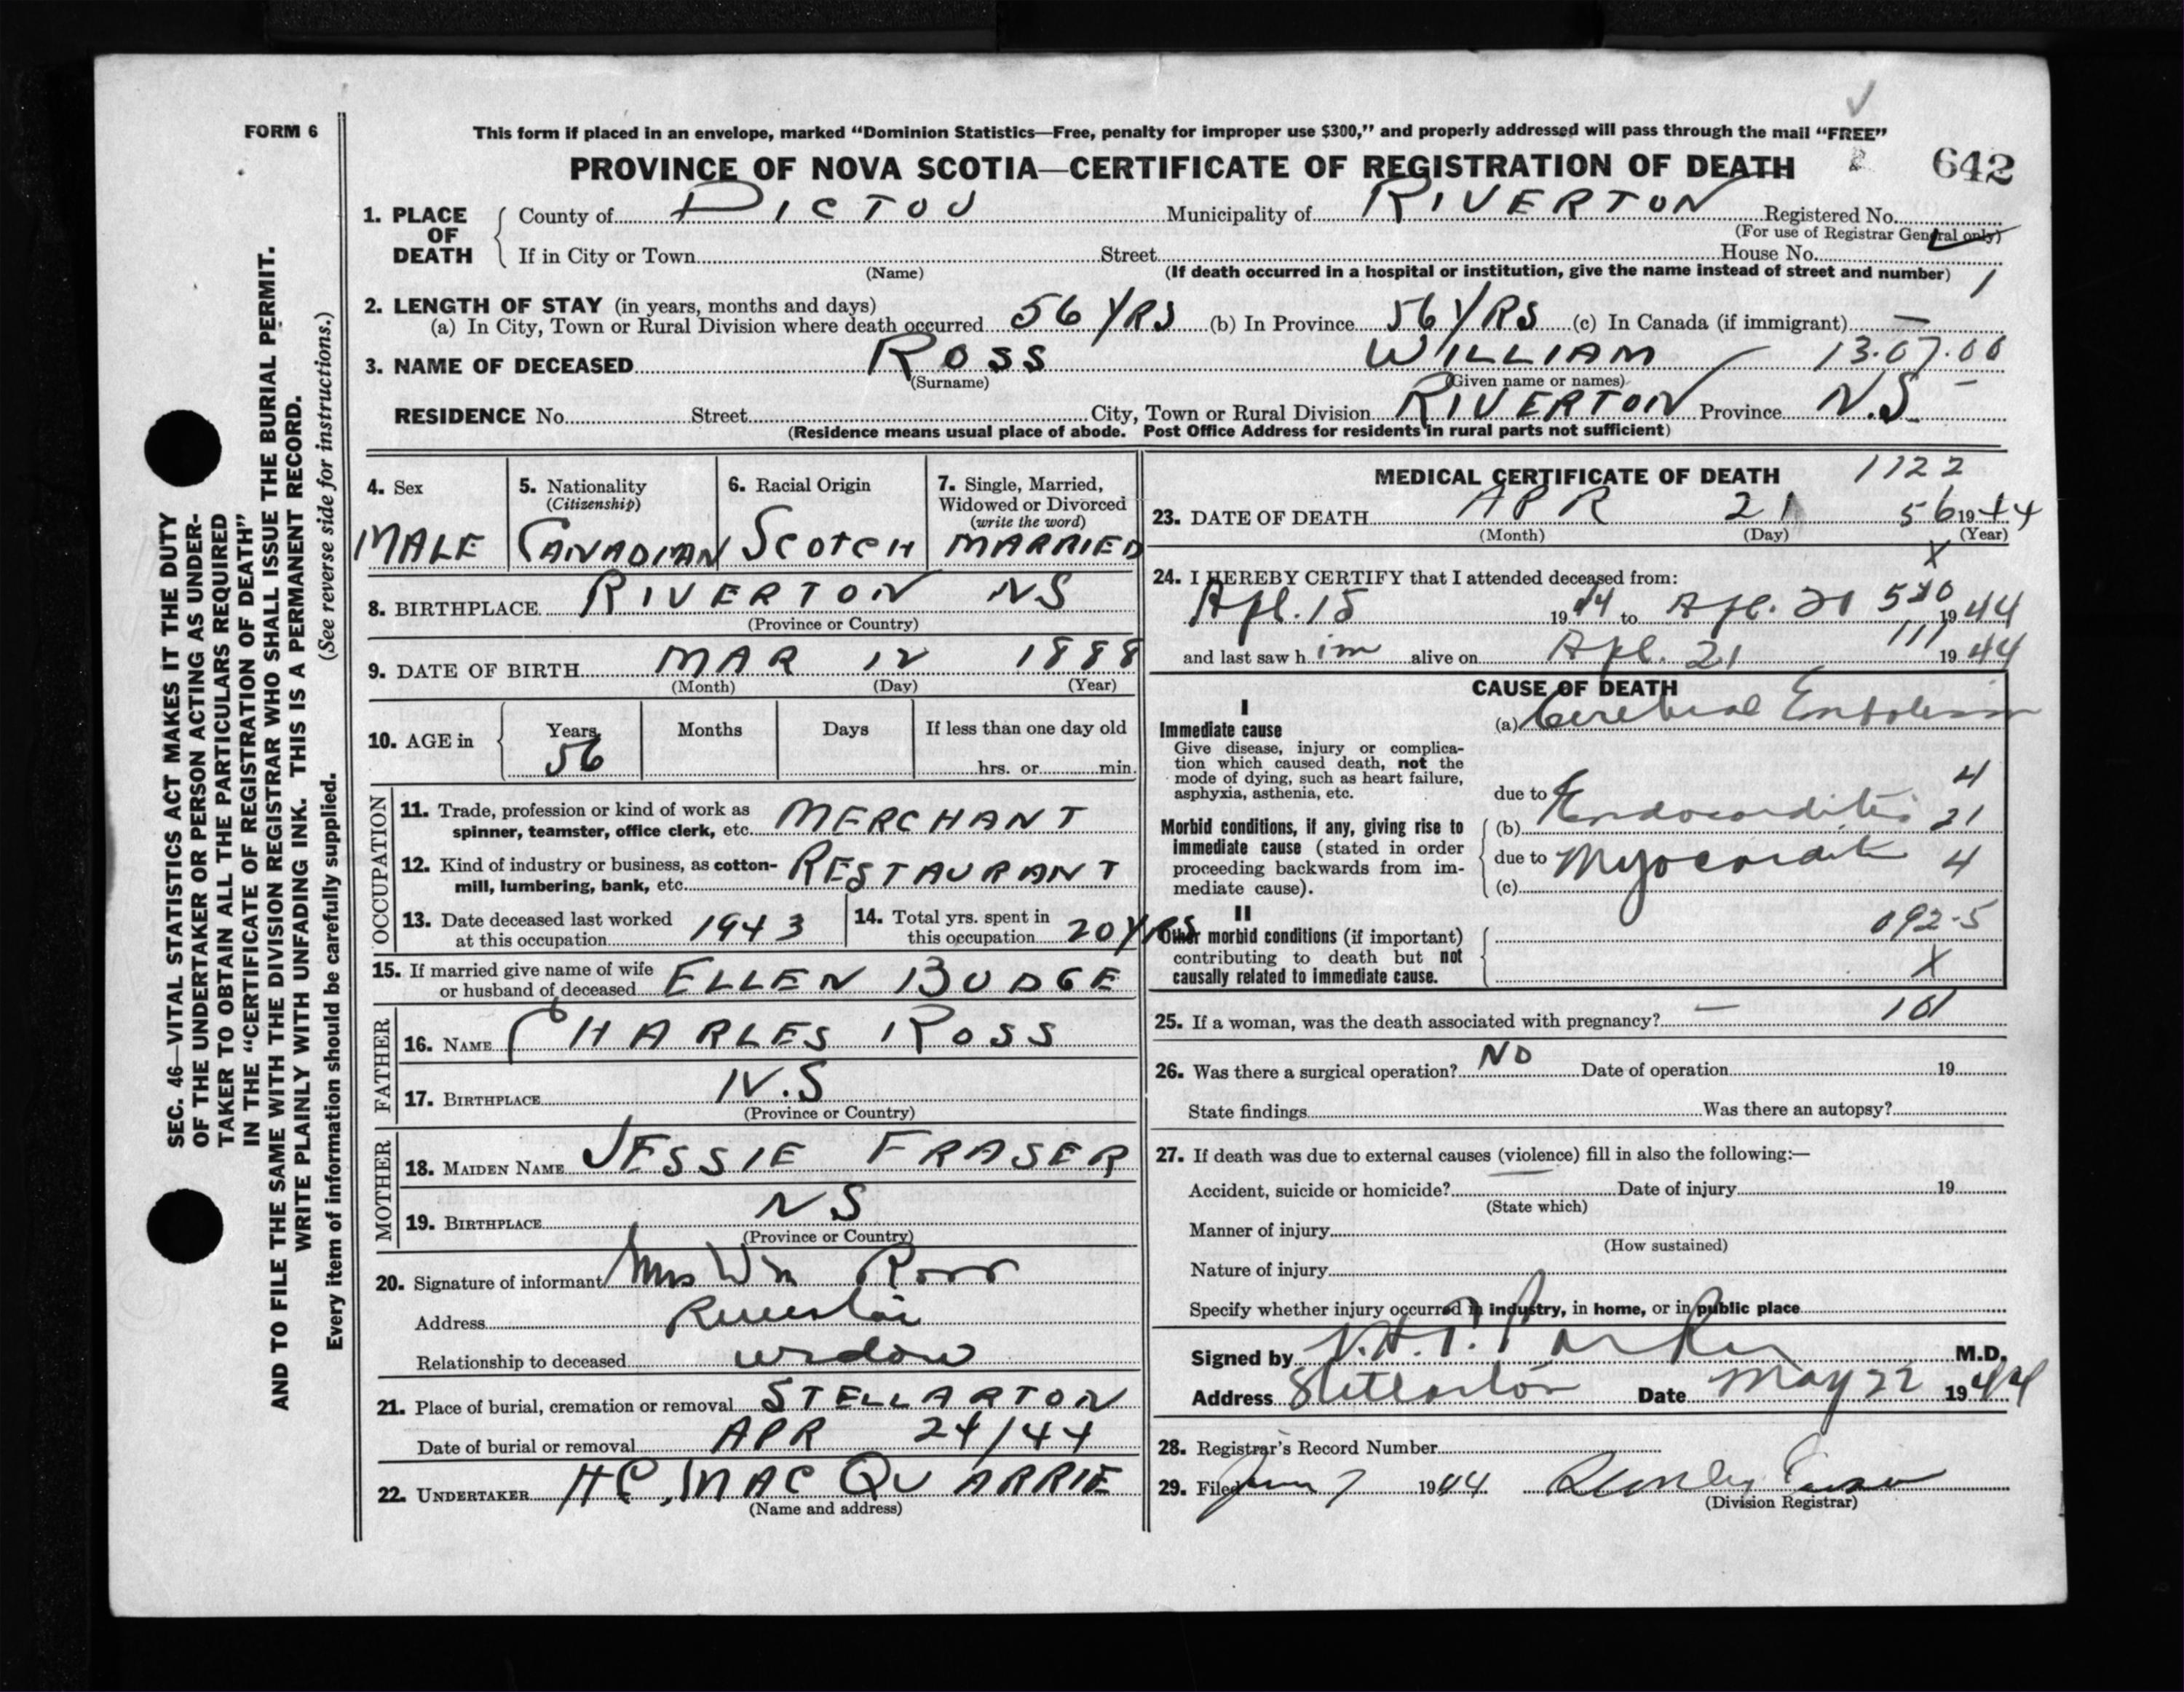 FORM 6
This form if placed in an envelope, marked “Dominion Statistics—Free, penalty for improper use $300,” and properly addressed will pass through the mail “FREE”
PROVINCE OF NOVA SCOTIA—CERTIFICATE OF REGISTRATION OF DEATH
642
SEC. 46—VITAL STATISTICS ACT MAKES IT THE DUTY
OF THE UNDERTAKER OR PERSON ACTING AS UNDER-
TAKER TO OBTAIN ALL THE PARTICULARS REQUIRED
IN THE “CERTIFICATE OF REGISTRATION OF DEATH”
AND TO FILE THE SAME WITH THE DIVISION REGISTRAR WHO SHALL ISSUE THE BURIAL PERMIT.
WRITE PLAINLY WITH UNFADING INK. THIS IS A PERMANENT RECORD.
(See reverse side for instructions.)
Every item of information should be carefully supplied.
1. PLACE OF DEATH
County of PICTOU Municipality of RIVERTON Registered No.
(For use of Registrar General only)
If in City or Town Street House No.
(Name) (If death occurred in a hospital or institution, give the name instead of street and number) 1
2. LENGTH OF STAY (in years, months and days)
(a) In City, Town or Rural Division where death occurred 56 YRS (b) In Province 56 YRS (c) In Canada (if immigrant) —
3. NAME OF DECEASED ROSS WILLIAM 13.07.00
(Surname) (Given name or names)
RESIDENCE No. Street City, Town or Rural Division RIVERTON Province N.S.
(Residence means usual place of abode. Post Office Address for residents in rural parts not sufficient)
4. Sex
MALE
5. Nationality
(Citizenship)
CANADIAN
6. Racial Origin
SCOTCH
7. Single, Married,
Widowed or Divorced
(write the word)
MARRIED
8. BIRTHPLACE RIVERTON NS
(Province or Country)
9. DATE OF BIRTH MAR 12 1888
(Month) (Day) (Year)
10. AGE in
Years Months Days If less than one day old
56 hrs. or min.
OCCUPATION
11. Trade, profession or kind of work as
spinner, teamster, office clerk, etc. MERCHANT
12. Kind of industry or business, as cotton-
mill, lumbering, bank, etc. RESTAURANT
13. Date deceased last worked
at this occupation 1943
14. Total yrs. spent in
this occupation 20 YRS
15. If married give name of wife
or husband of deceased ELLEN BUDGE
FATHER
16. NAME CHARLES ROSS
17. BIRTHPLACE N.S
(Province or Country)
MOTHER
18. MAIDEN NAME JESSIE FRASER
19. BIRTHPLACE NS
(Province or Country)
20. Signature of informant Mrs Wm Ross
Address Riverton
Relationship to deceased widow
21. Place of burial, cremation or removal STELLARTON
Date of burial or removal APR 24/44
22. UNDERTAKER HC, MAC QUARRIE
(Name and address)
MEDICAL CERTIFICATE OF DEATH 1122
23. DATE OF DEATH APR 21 56 1944
(Month) (Day) (Year)
X
24. I HEREBY CERTIFY that I attended deceased from:
Apl. 15 1944 to Apl. 1944
and last saw him alive on Apl. 21 111 1944
CAUSE OF DEATH
I
Immediate cause
Give disease, injury or complica-
tion which caused death, not the
mode of dying, such as heart failure,
asphyxia, asthenia, etc.
(a) Cerebral Embolism
4
due to Endocarditis
(b) 21
Morbid conditions, if any, giving rise to
immediate cause (stated in order
proceeding backwards from im-
mediate cause).
due to Myocardit 4
(c)
II
Other morbid conditions (if important)
contributing to death but not
causally related to immediate cause.
092-5
X
25. If a woman, was the death associated with pregnancy? — 101
26. Was there a surgical operation? NO Date of operation 19
State findings Was there an autopsy?
27. If death was due to external causes (violence) fill in also the following:—
Accident, suicide or homicide? Date of injury 19
(State which)
Manner of injury
(How sustained)
Nature of injury
Specify whether injury occurred in industry, in home, or in public place
Signed by Parker M.D.
Address Stellarton Date May 22 1944
28. Registrar's Record Number
29. Filed June 7 1944
(Division Registrar)